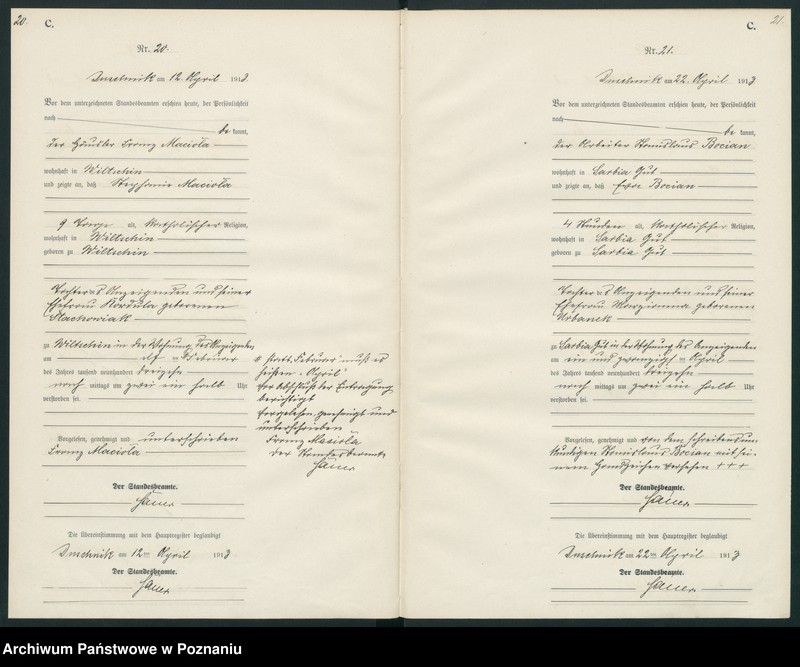 20.
C.
Nr. 20.
Duschnik am 12. April 1913.
Vor dem unterzeichneten Standesbeamten erschien heute, der Persönlichkeit
nach
bekannt,
der Häusler Franz Maciola
wohnhaft in Wiltschin
und zeigte an, daß Stephanie Maciola
9 Tage alt, katholischer Religion,
wohnhaft in Wiltschin
geboren zu Wiltschin
Tochter des Anzeigenden und seiner
Ehefrau Kordula geborenen
Stachowiak
zu Wiltschin in der Wohnung des Anzeigenden
am elf ten Februar
des Jahres tausend neunhundert dreizehn
nach mittags um zwei ein halb Uhr
verstorben sei.
Vorgelesen, genehmigt und unterschrieben
Franz Maciola
Der Standesbeamte.
Sauer
Die Übereinstimmung mit dem Hauptregister beglaubigt
Duschnik am 12ten April 1913
Der Standesbeamte.
Sauer
statt „Februar“ muß es
heißen „April“
Vor Abschluß der Eintragung
berichtigt
Vorgelesen, genehmigt und
unterschrieben
Franz Maciola
Der Standesbeamte
Sauer
21.
C.
Nr. 21.
Duschnik am 22. April 1913
Vor dem unterzeichneten Standesbeamten erschien heute, der Persönlichkeit
nach
bekannt,
der Arbeiter Stanislaus Bocian
wohnhaft in Sarbia Gut
und zeigte an, daß Eva Bocian
4 Stunden alt, katholischer Religion,
wohnhaft in Sarbia Gut
geboren zu Sarbia Gut
Tochter des Anzeigenden und seiner
Ehefrau Marianna geborenen
Urbanek
zu Sarbia Gut in der Wohnung des Anzeigenden
am ein und zwanzigsten April
des Jahres tausend neunhundert dreizehn
nach mittags um zwei ein halb Uhr
verstorben sei.
Vorgelesen, genehmigt und von dem schreibensun-
kundigen Stanislaus Bocian mit sei-
nem Handzeichen versehen + + +
Der Standesbeamte.
Sauer
Die Übereinstimmung mit dem Hauptregister beglaubigt
Duschnik am 22ten April 1913
Der Standesbeamte.
Sauer
Archiwum Państwowe w Poznaniu